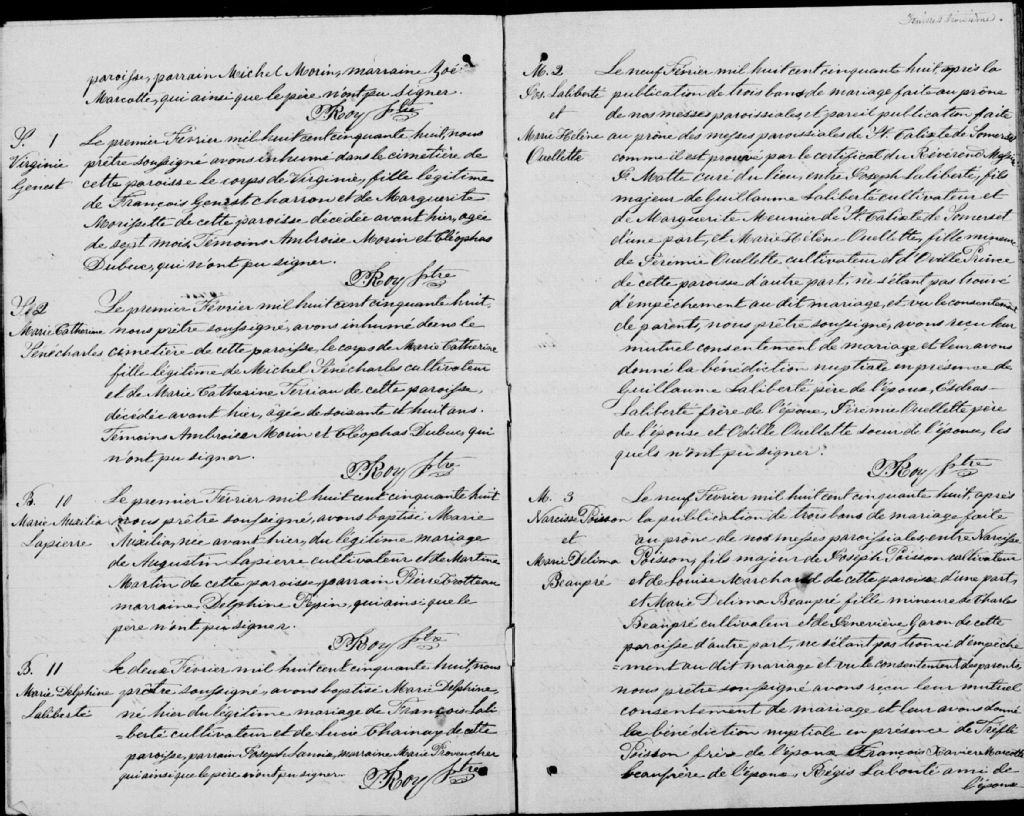 paroisse, parrain Michel Morin, marraine Zoé
Marcotte, qui ainsi que le père n'ont pu signer.
P. Roy ptre
S. 1
Virginie
Genest
Le premier Février mil huit cent cinquante huit, nous
prêtre soussigné avons inhumé dans le cimetière de
cette paroisse le corps de Virginie, fille légitime
de François Genest charron et de Marguerite
de cette paroisse décédée avant hier, agée
de sept mois, Témoins Ambroise Morin et Cléophas
Dubuc, qui n'ont pu signer.
P. Roy ptre
S. 2
Marie Catherine
Sénécharles
Le premier Février mil huit cent cinquante huit
nous prêtre soussigné, avons inhumé dans le
cimetière de cette paroisse, le corps de Marie Catherine
fille légitime de Michel Sénécharles cultivateur
et de Marie Catherine Terriau de cette paroisse,
décédée avant hier, agée de soixante et huit ans.
Témoins Ambroise Morin et Cléophas Dubuc, qui
n'ont pu signer.
P. Roy ptre
B. 10
Marie Auxilia
Lapierre
Le premier Février mil huit cent cinquante huit
nous prêtre soussigné, avons baptisé Marie
Auxilia, née avant hier, du légitime mariage
de Augustin Lapierre cultivateur et de Martine
Martin de cette paroisse, parrain Pierre Trotteau
marraine, Delphine Pepin, qui ainsi que le
père n'ont pu signer.
P. Roy ptre
B. 11
Marie Delphine
Laliberté
Le deux Février mil huit cent cinquante huit, nous
prêtre soussigné, avons baptisé Marie Delphine,
né hier du légitime mariage de François Lali-
=berté cultivateur et de Lucie Chainay de cette
paroisse, parrain Joseph marraine Marie Provencher
qui ainsi que le père n'ont pu signer.
P. Roy ptre
M. 2
Jos. Laliberté
et
Marie Hélène
Ouellette
Le neuf Février mil huit cent cinquante huit, après la
publication de trois bans de mariage faite au prône
de nos messes paroissiales et pareil publication faite
au prône des messes paroissiales de St Calixte de Somerset
comme il est prouvé par le certificat du Révérend Messire
Matte curé du lieu, entre Joseph Laliberté, fils
majeur de Guillaume Laliberté cultivateur et
de Marguerite Meunier de St Calixte de Somerset
d'une part, et Marie Hélène Ouellette, fille mineure
de Jérémie Ouellette cultivateur et d'Oville Prince
de cette paroisse d'autre part, ne s'étant pas trouvé
d'empêchement au dit mariage, et vu le consentement
de parents, nous prêtre soussigné, avons recu leur
mutuel consentement de mariage et leur avons
donné la bénédiction nuptiale en présence de
Guillaume Laliberté père de l'époux, Esdras
Laliberté frère de l'époux, Jérémie Ouellette père
de l'épouse et Odille Ouellette soeur de l'épouse, les
quels n'ont pu signer.
P. Roy ptre
M. 3
Narcisse Poisson
et
Marie Delima
Beaupré
Le neuf Février mil huit cent cinquante huit, après
la publication de trois bans de mariage faite
au prône de nos messes paroissiales, entre Narcisse
Poisson, fils majeur de Joseph Poisson cultivateur
et de Louise Marchand de cette paroisse d'une part,
et Marie Delima Beaupré fille mineure de Charles
Beaupré cultivateur et de Geneviève Garon de cette
paroisse d'autre part, ne s'étant pas trouvé d'empêche
=ment au dit mariage et vu le consentement des parents,
nous prêtre soussigné avons recu leur mutuel
consentement de mariage et leur avons donné
la bénédiction nuptiale en présence de Treflé
Poisson frère de l'époux François Xavier Marcotte
beaufrère de l'époux, Régis Labonté ami de
l'épouse